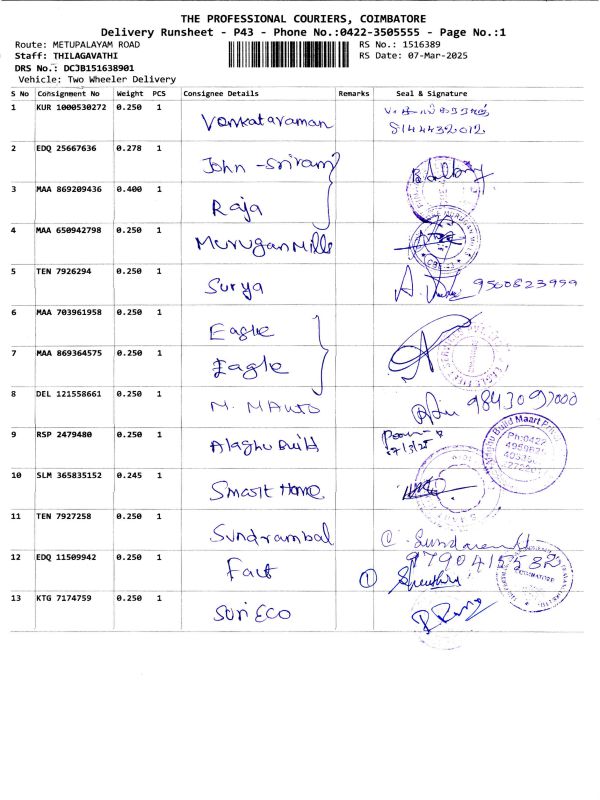 THE PROFESSIONAL COURIERS, COIMBATORE
Delivery Runsheet - P43 - Phone No.:0422-3505555 - Page No.:1
Route: METUPALAYAM ROAD RS No.: 1516389
Staff: THILAGAVATHI RS Date: 07-Mar-2025
DRS No.: DCJB151638901
Vehicle: Two Wheeler Delivery
S No Consignment No Weight PCS Consignee Details Remarks Seal & Signature
1 KUR 1000530272 0.250 1 Venkataraman
8144432012
2 EDQ 25667636 0.278 1 John - Sriram
3 MAA 869209436 0.400 1 Raja
4 MAA 650942798 0.250 1 Murugan Mills
5 TEN 7926294 0.250 1 Surya 9500823999
6 MAA 703961958 0.250 1 Eagle
7 MAA 869364575 0.250 1 Eagle
8 DEL 121558661 0.250 1 M. MAuto
9 RSP 2479480 0.250 1 Alaghu Build
10 SLM 365835152 0.245 1 Smart Home
11 TEN 7927258 0.250 1 Sundrambal
12 EDQ 11509942 0.250 1 Fact 9790415532
13 KTG 7174759 0.250 1 Suri Eco